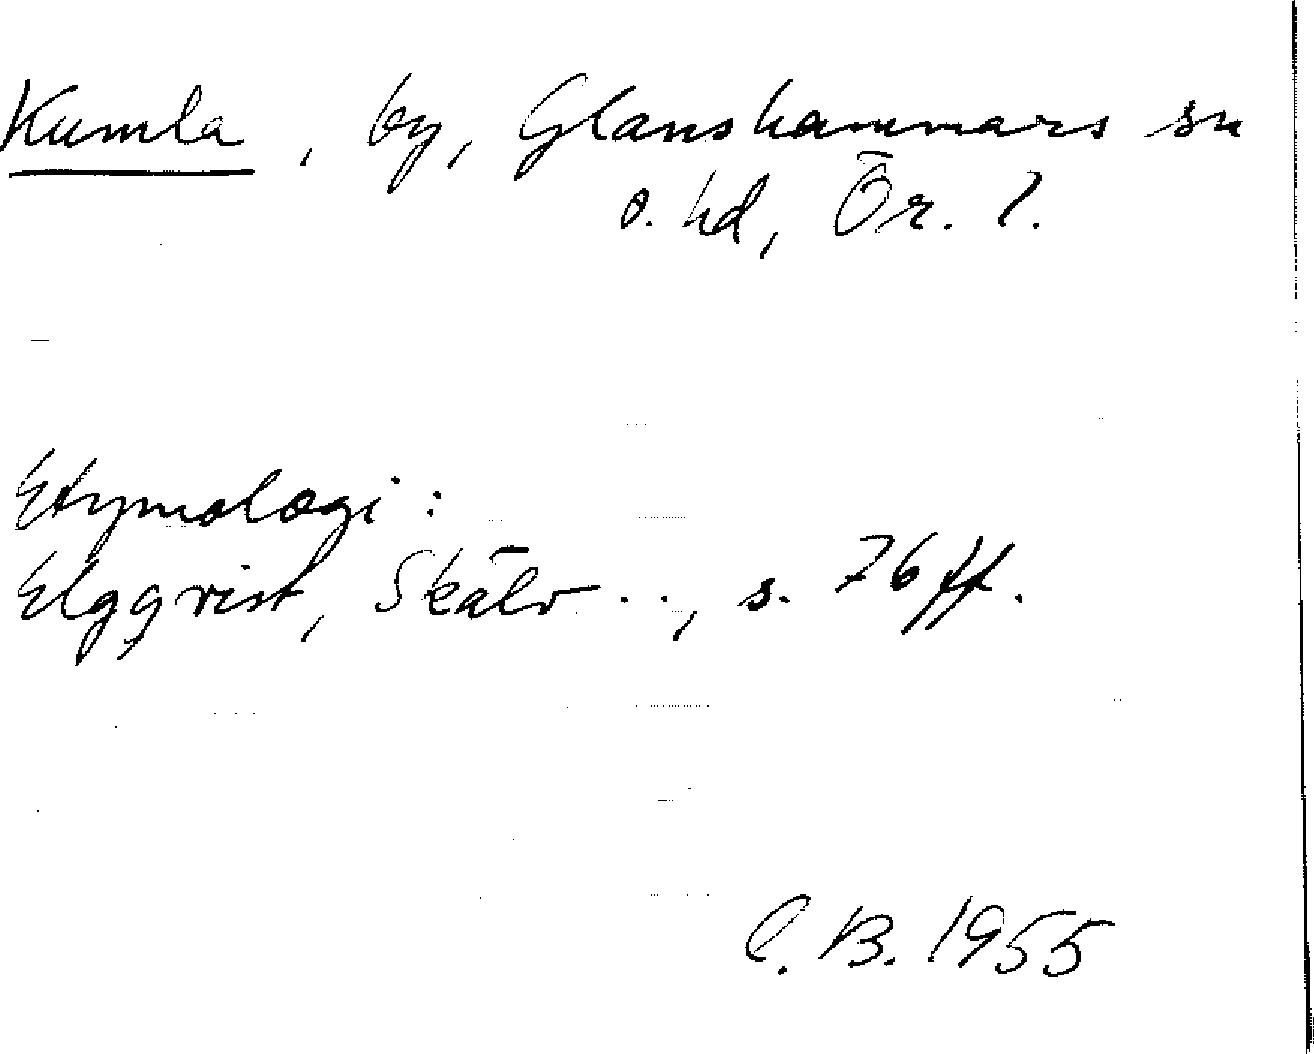 Kumla, by, Glanshammars sn
o. hd, Ör. l.
Etymologi:
Elgqvist, Skälv..., s. 76 ff.
C. B. 1955